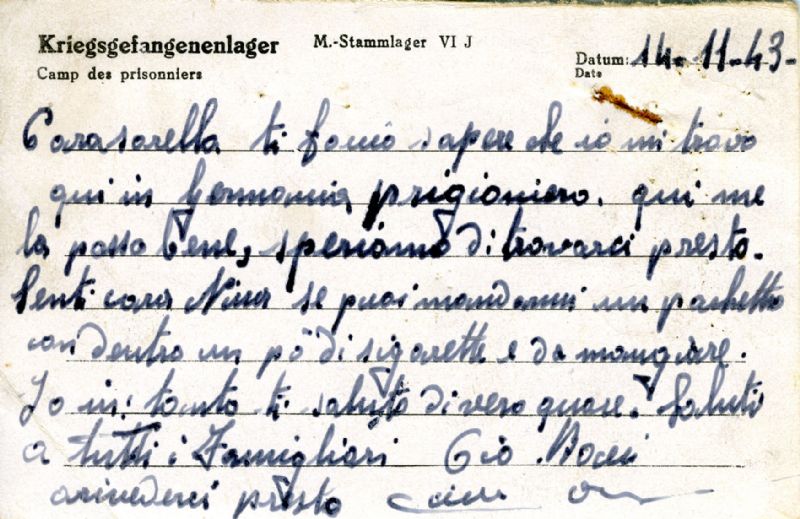 Kriegsgefangenenlager M.-Stammlager VI J
Camp des prisonniers
Datum: 14-11-43-
Date
Carasorella ti facio sapere che io mi trovo
qui in Germania, prigioniero. qui me
la passo bene, speriamo di trovarci presto.
Senti cara Nina se puoi mandarmi un pachetto
con dentro un pò di sigarette e da mangiare.
Io in tanto ti saluto di vero quore. Saluti
a tutti i Famigliari Ciò Baci
arivederci presto